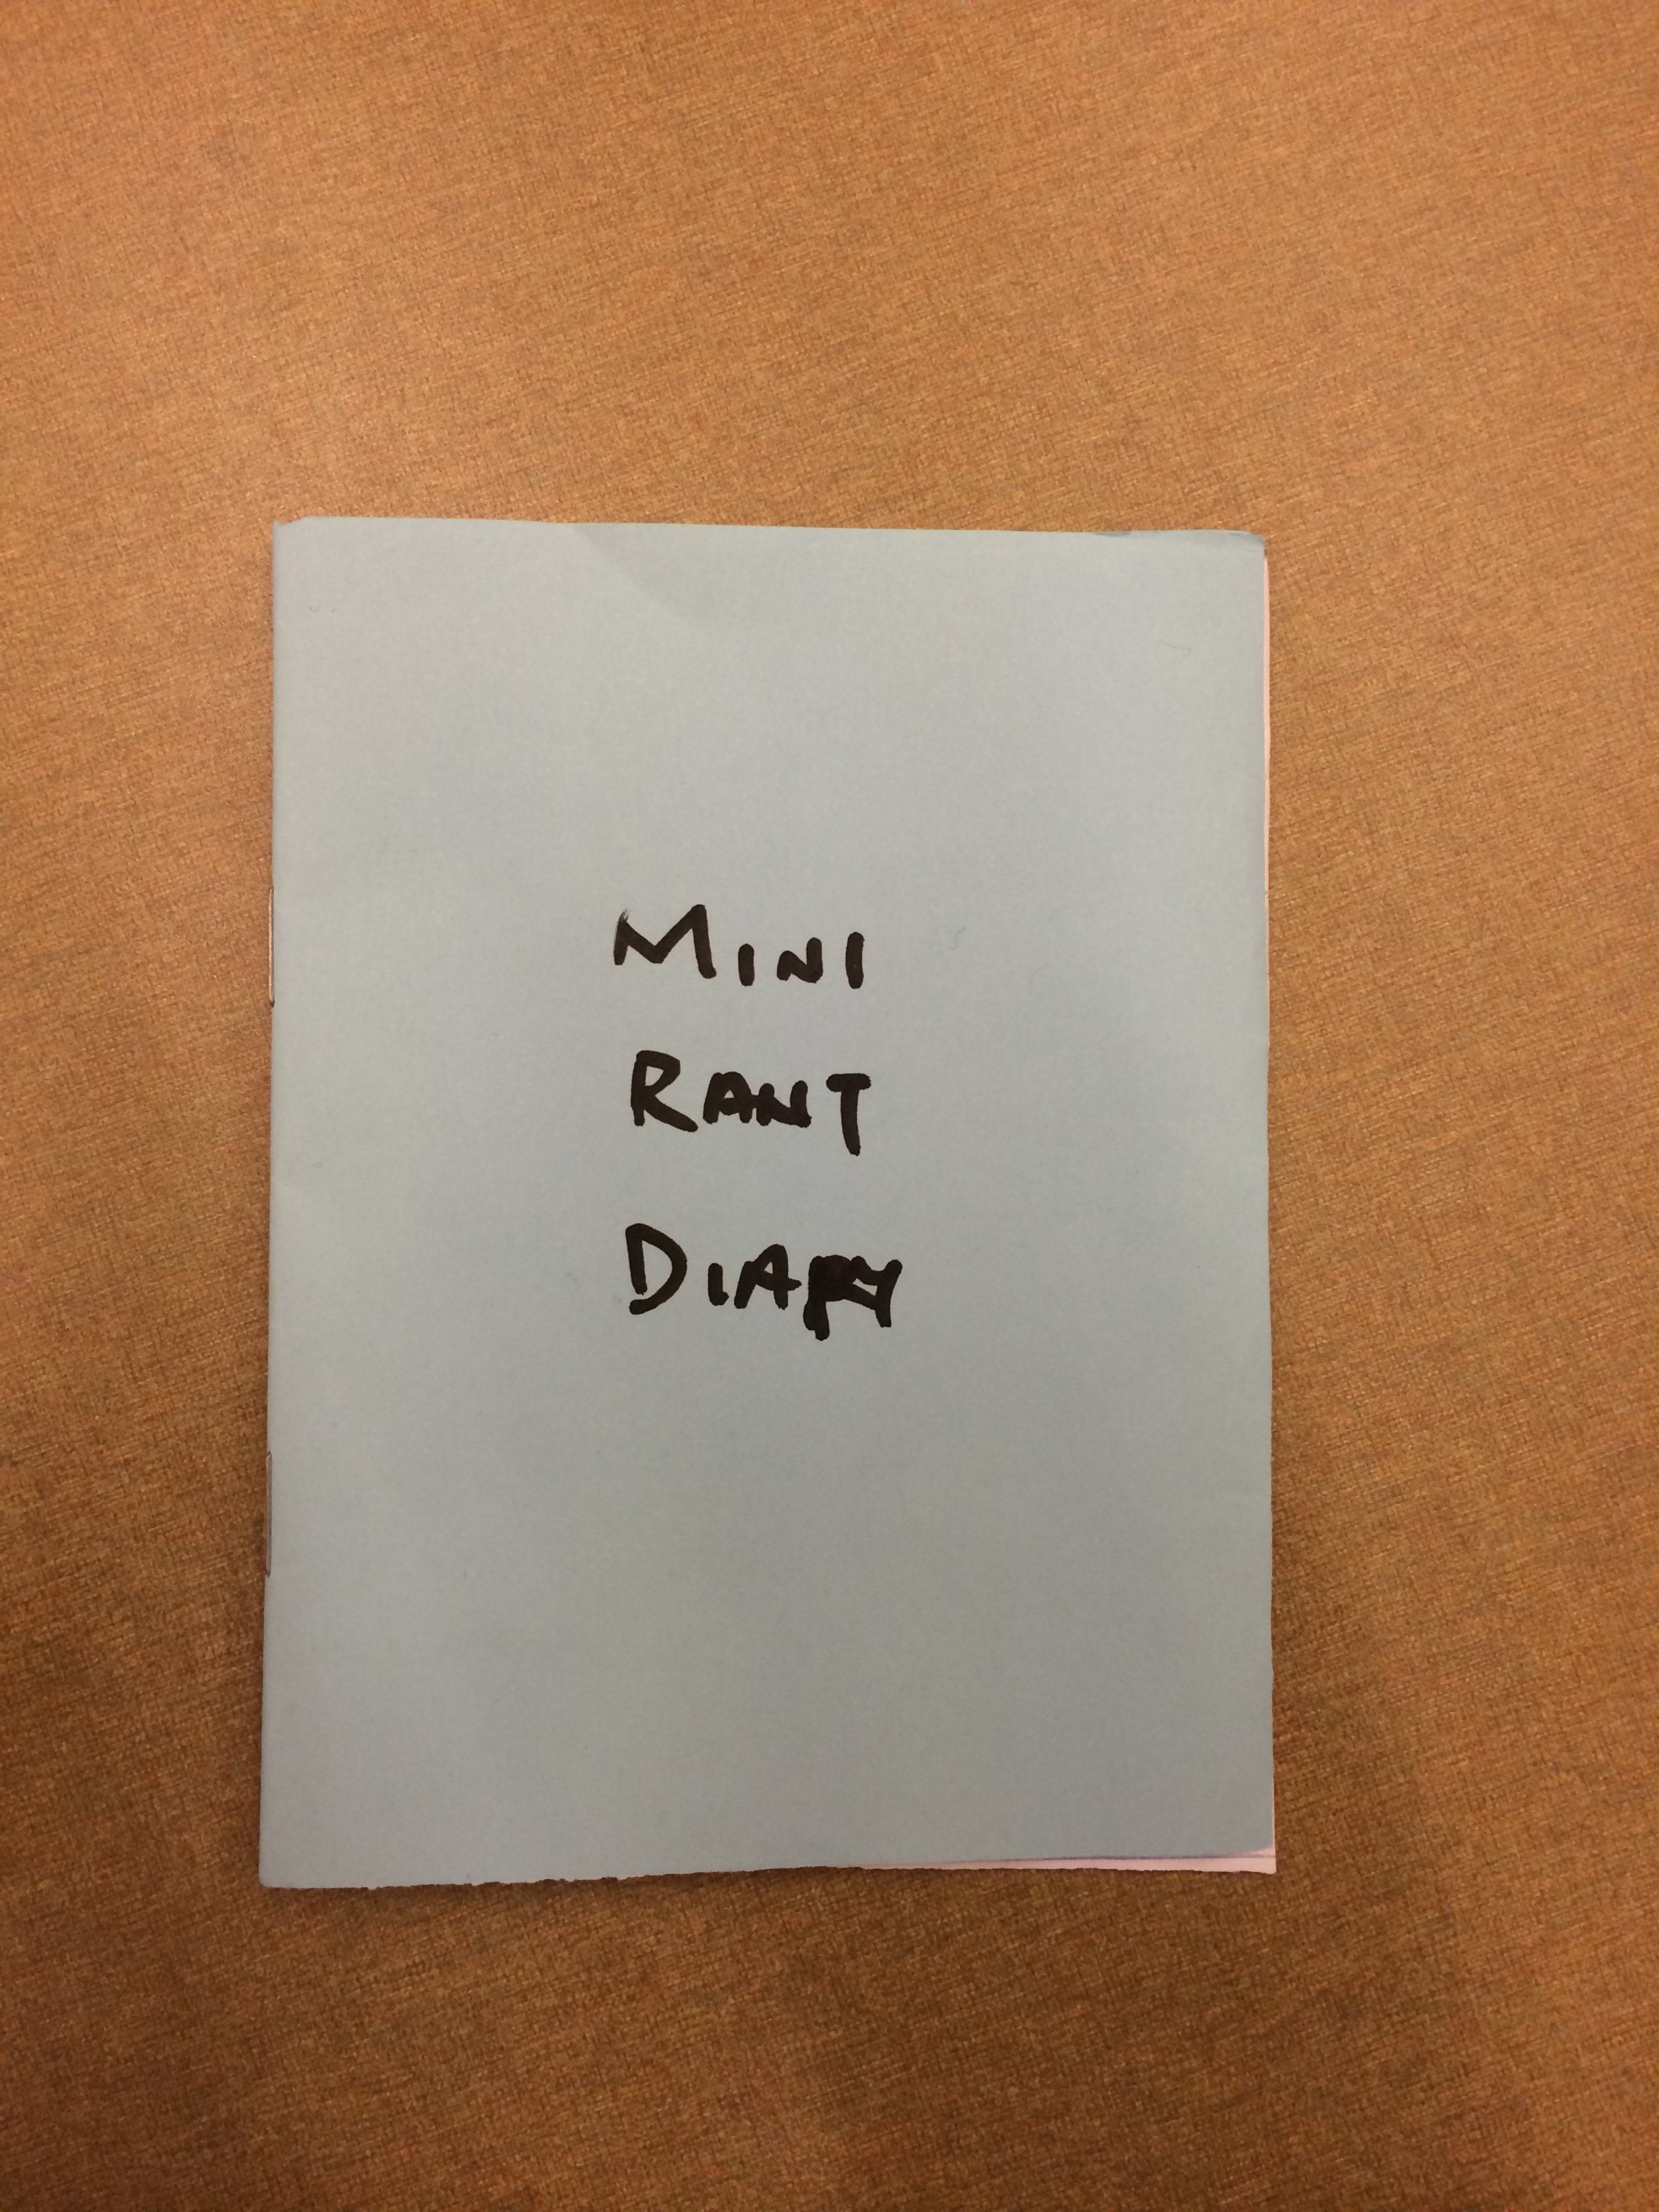 MINI
RANT
DIARY